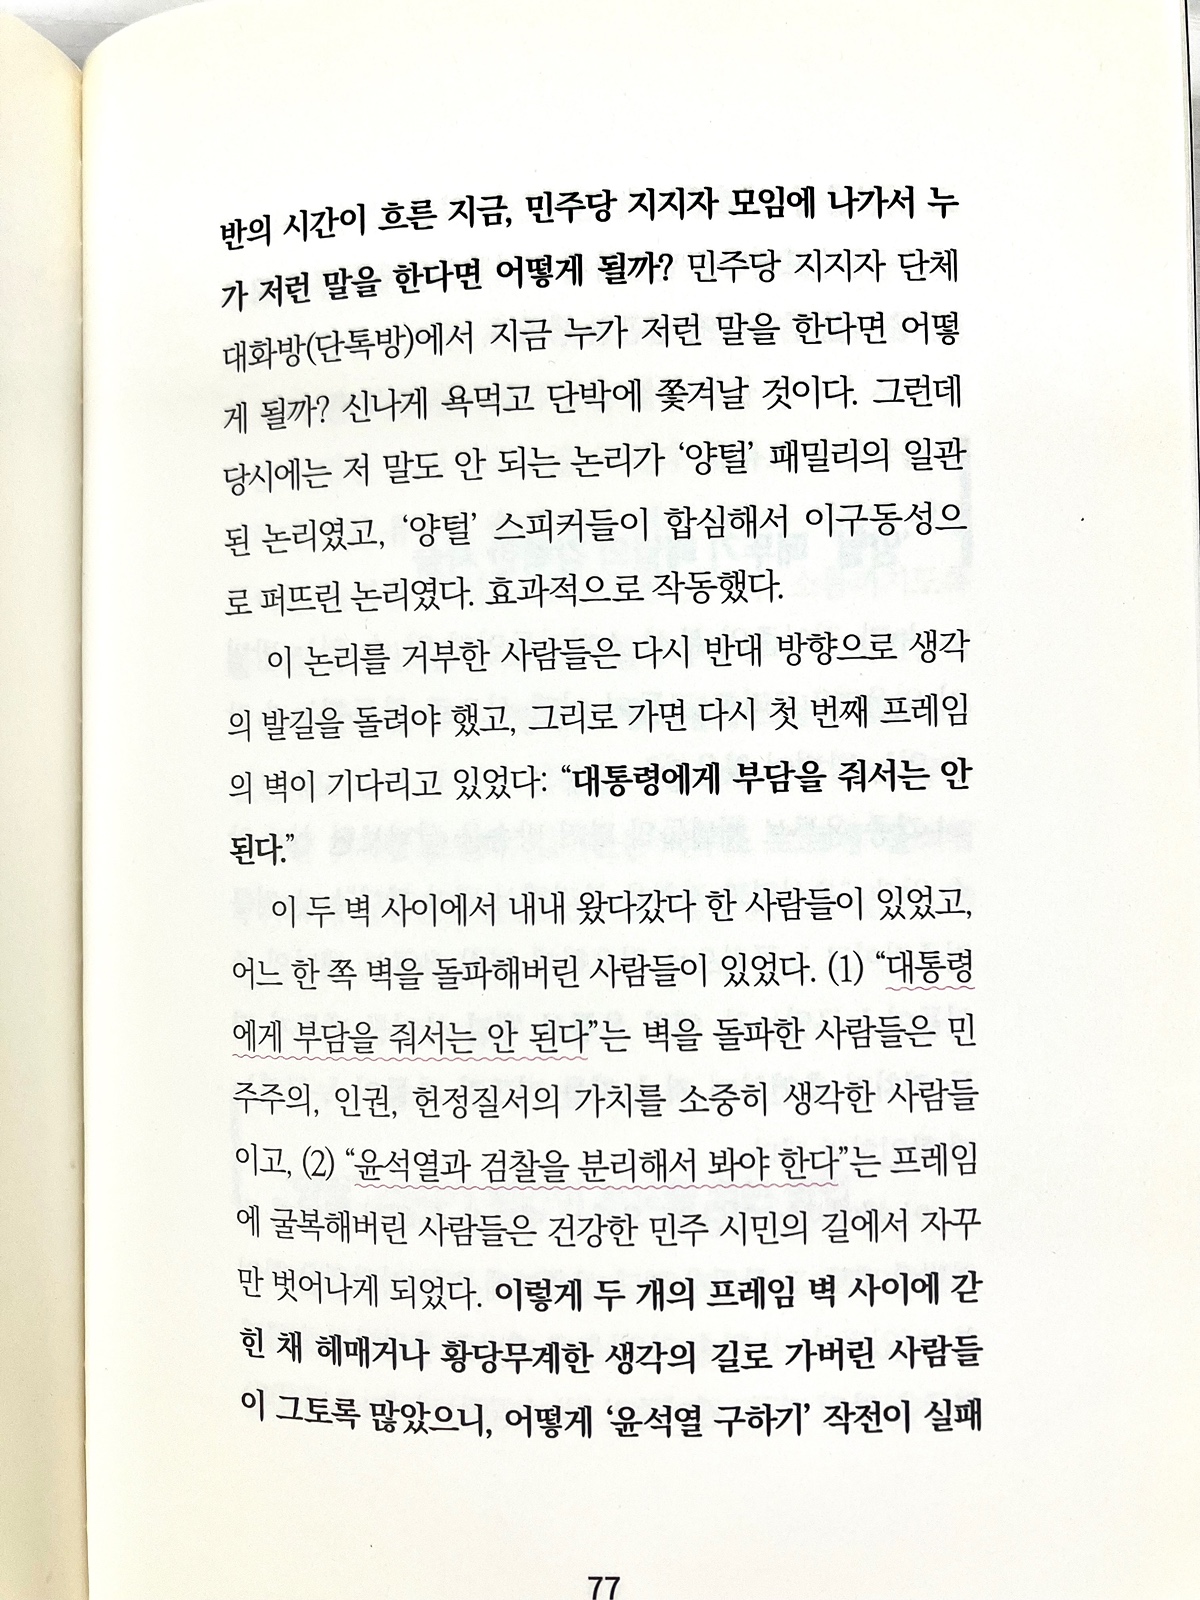 반의 시간이 흐른 지금, 민주당 지지자 모임에 나가서 누
가 저런 말을 한다면 어떻게 될까? 민주당 지지자 단체
대화방(단톡방)에서 지금 누가 저런 말을 한다면 어떻
게 될까? 신나게 욕먹고 단박에 쫓겨날 것이다. 그런데
당시에는 저 말도 안 되는 논리가 ‘양털’ 패밀리의 일관
된 논리였고, ‘양털’ 스피커들이 합심해서 이구동성으
로 퍼뜨린 논리였다. 효과적으로 작동했다.
이 논리를 거부한 사람들은 다시 반대 방향으로 생각
의 발길을 돌려야 했고, 그리로 가면 다시 첫 번째 프레임
의 벽이 기다리고 있었다: “대통령에게 부담을 줘서는 안
된다.”
이 두 벽 사이에서 내내 왔다갔다 한 사람들이 있었고,
어느 한 쪽 벽을 돌파해버린 사람들이 있었다. (1) “대통령
에게 부담을 줘서는 안 된다”는 벽을 돌파한 사람들은 민
주주의, 인권, 헌정질서의 가치를 소중히 생각한 사람들
이고, (2) “윤석열과 검찰을 분리해서 봐야 한다”는 프레임
에 굴복해버린 사람들은 건강한 민주 시민의 길에서 자꾸
만 벗어나게 되었다. 이렇게 두 개의 프레임 벽 사이에 갇
힌 채 헤매거나 황당무계한 생각의 길로 가버린 사람들
이 그토록 많았으니, 어떻게 ‘윤석열 구하기’ 작전이 실패
77